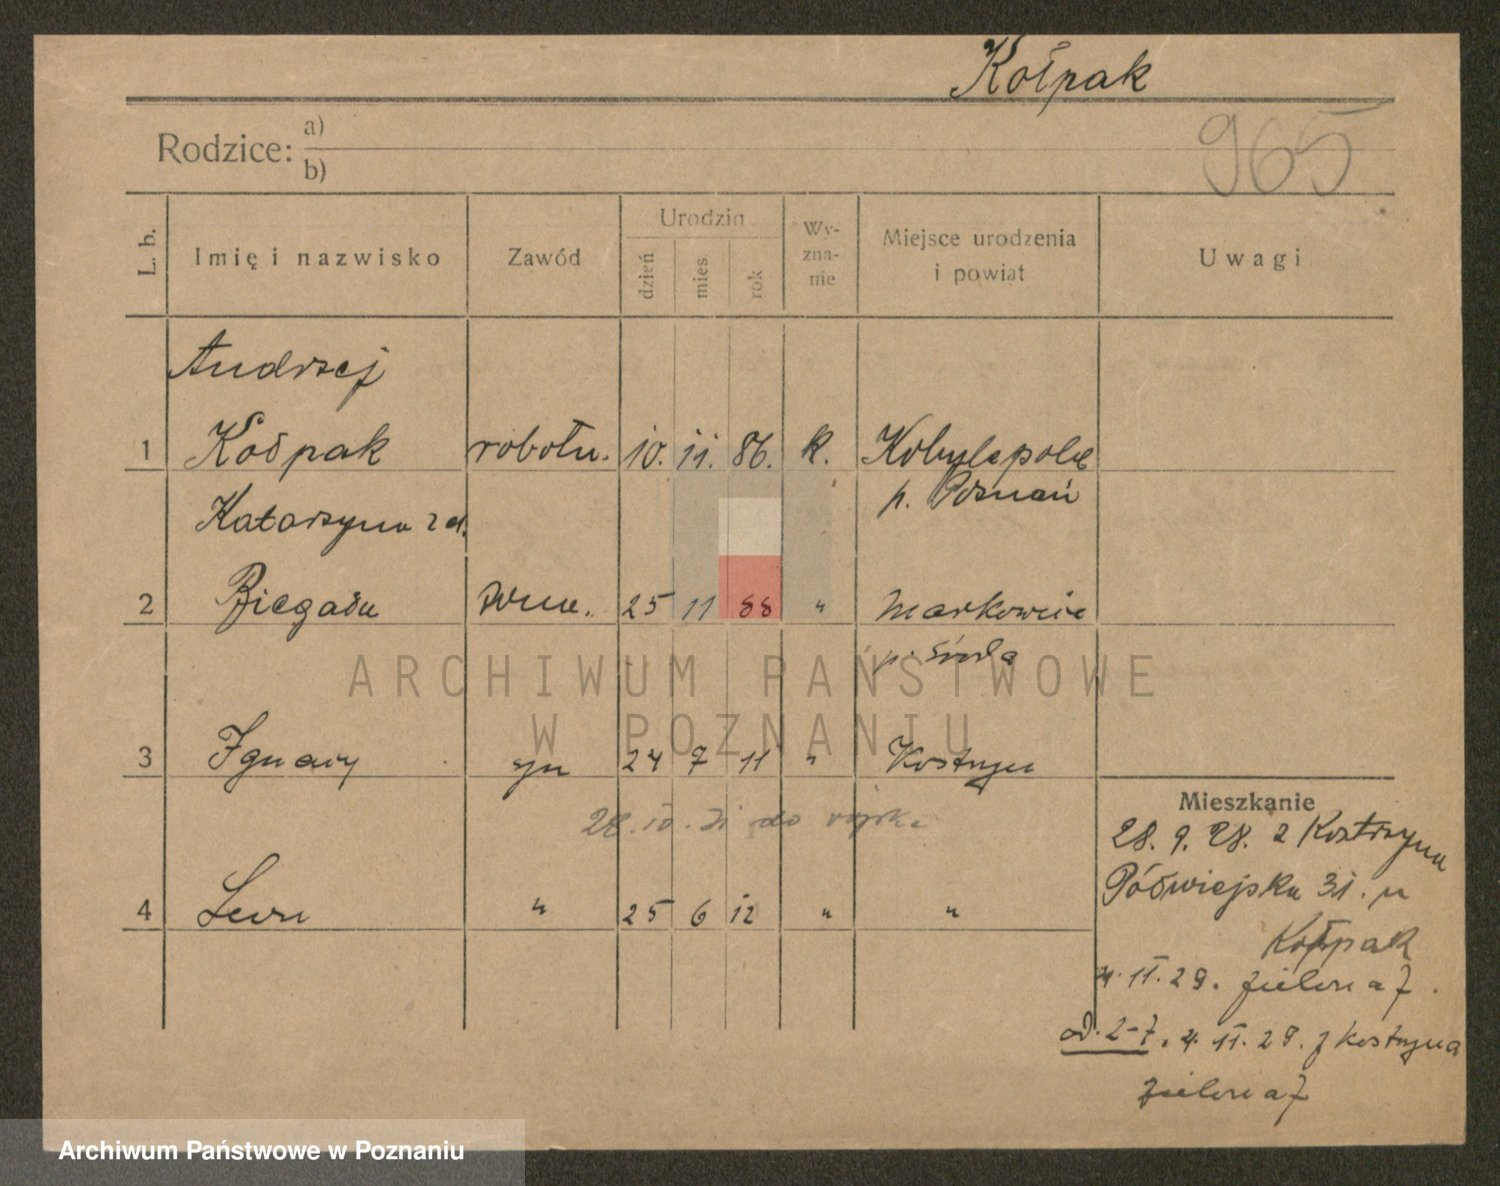 Kołpak
965
Rodzice: a)
b)
L. b.
Imię i nazwisko
Zawód
Urodzin
dzień
mies
rok
Wy-
zna-
nie
Miejsce urodzenia
i powiat
Uwagi
Andrzej
1 Kołpak robotn. 10. 11. 86. k. Kobylepole
p. Poznań
Katarzyna z d.
2 25 11 88 " Markowice
p. Środa
3 Ignacy syn 24 7 11 " Kostrzyn
28. 10. 31 do wojska
4 Leon " 25 6 12 " "
Mieszkanie
28. 9. 28. z Kostrzyna
Półwiejska 31. u
Kołpak
4. II. 29. Zielona 7.
od. 2-7. 4. II. 29. z Kostrzyna
Zielona 7
ARCHIWUM PAŃSTWOWE
W POZNANIU
Archiwum Państwowe w Poznaniu